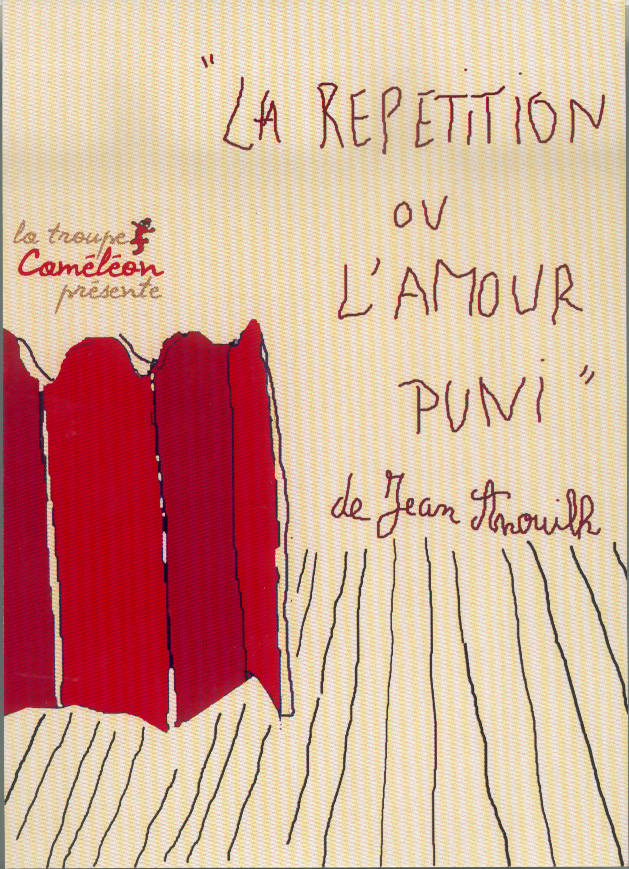 "LA REPETITION
OU
L'AMOUR
PUNI"
de Jean Anouilh
la troupe
Caméléon
présente